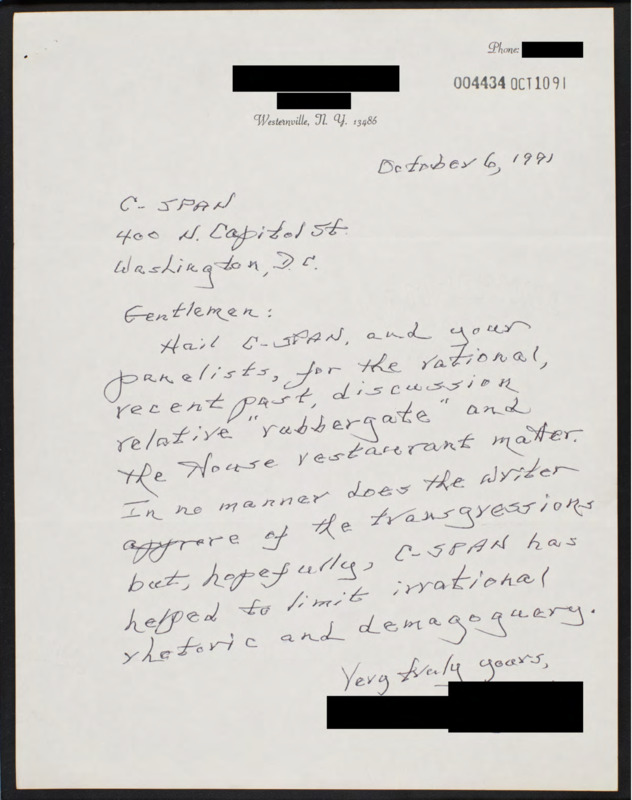 Phone:
004434 OCT 10 91
Westernville, N. Y. 13486
October 6, 1991
C-SPAN
400 N. Capitol St.
Washington, D.C.
Gentlemen:
Hail C-SPAN, and your
panelists, for the rational,
recent past, discussion
relative "rubbergate" and
the House restaurant matter.
In no manner does the writer
approve of the transgressions
but, hopefully, C-SPAN has
helped to limit irrational
rhetoric and demagoguery.
Very truly yours,